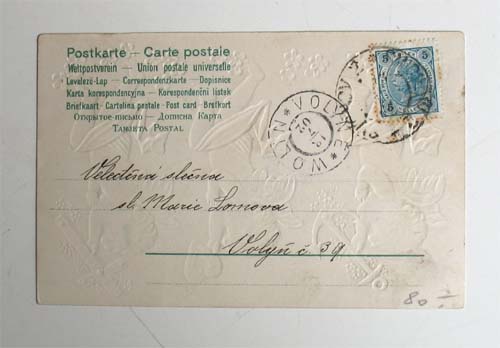 Postkarte — Carte postale
Weltpostverein — Union postale universelle
Levelező-Lap — Correspondenzkarte — Dopisnice
Karta korespondencyjna — Korespondenční lístek
Briefkaart — Cartolina postale — Post card — Brefkort
Открытое письмо — Дописна Карта
Tarjeta Postal
5 5
5 5
VOLYNĚ * WOLIN *
Velectěná slečna
sl. Marie Lomova
Volyň č. 39
80